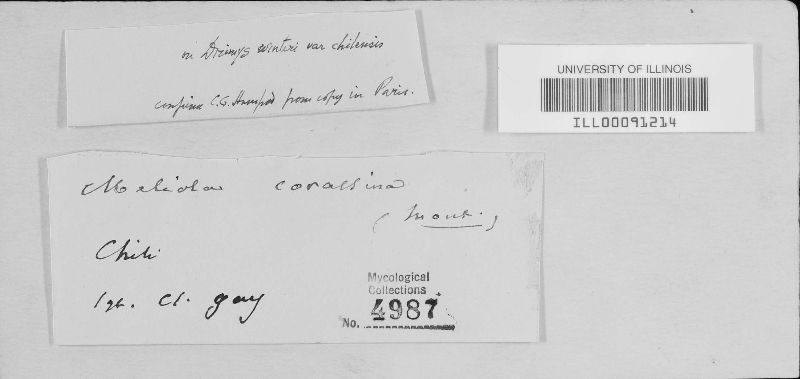 on Drimys winteri var chilensis
confirm C.G. Hansford from copy in Paris.
UNIVERSITY OF ILLINOIS
ILL00091214
Meliola corallina
(Mont.)
Chili
lgt. Cl. gay
Mycological
Collections
No. 4987